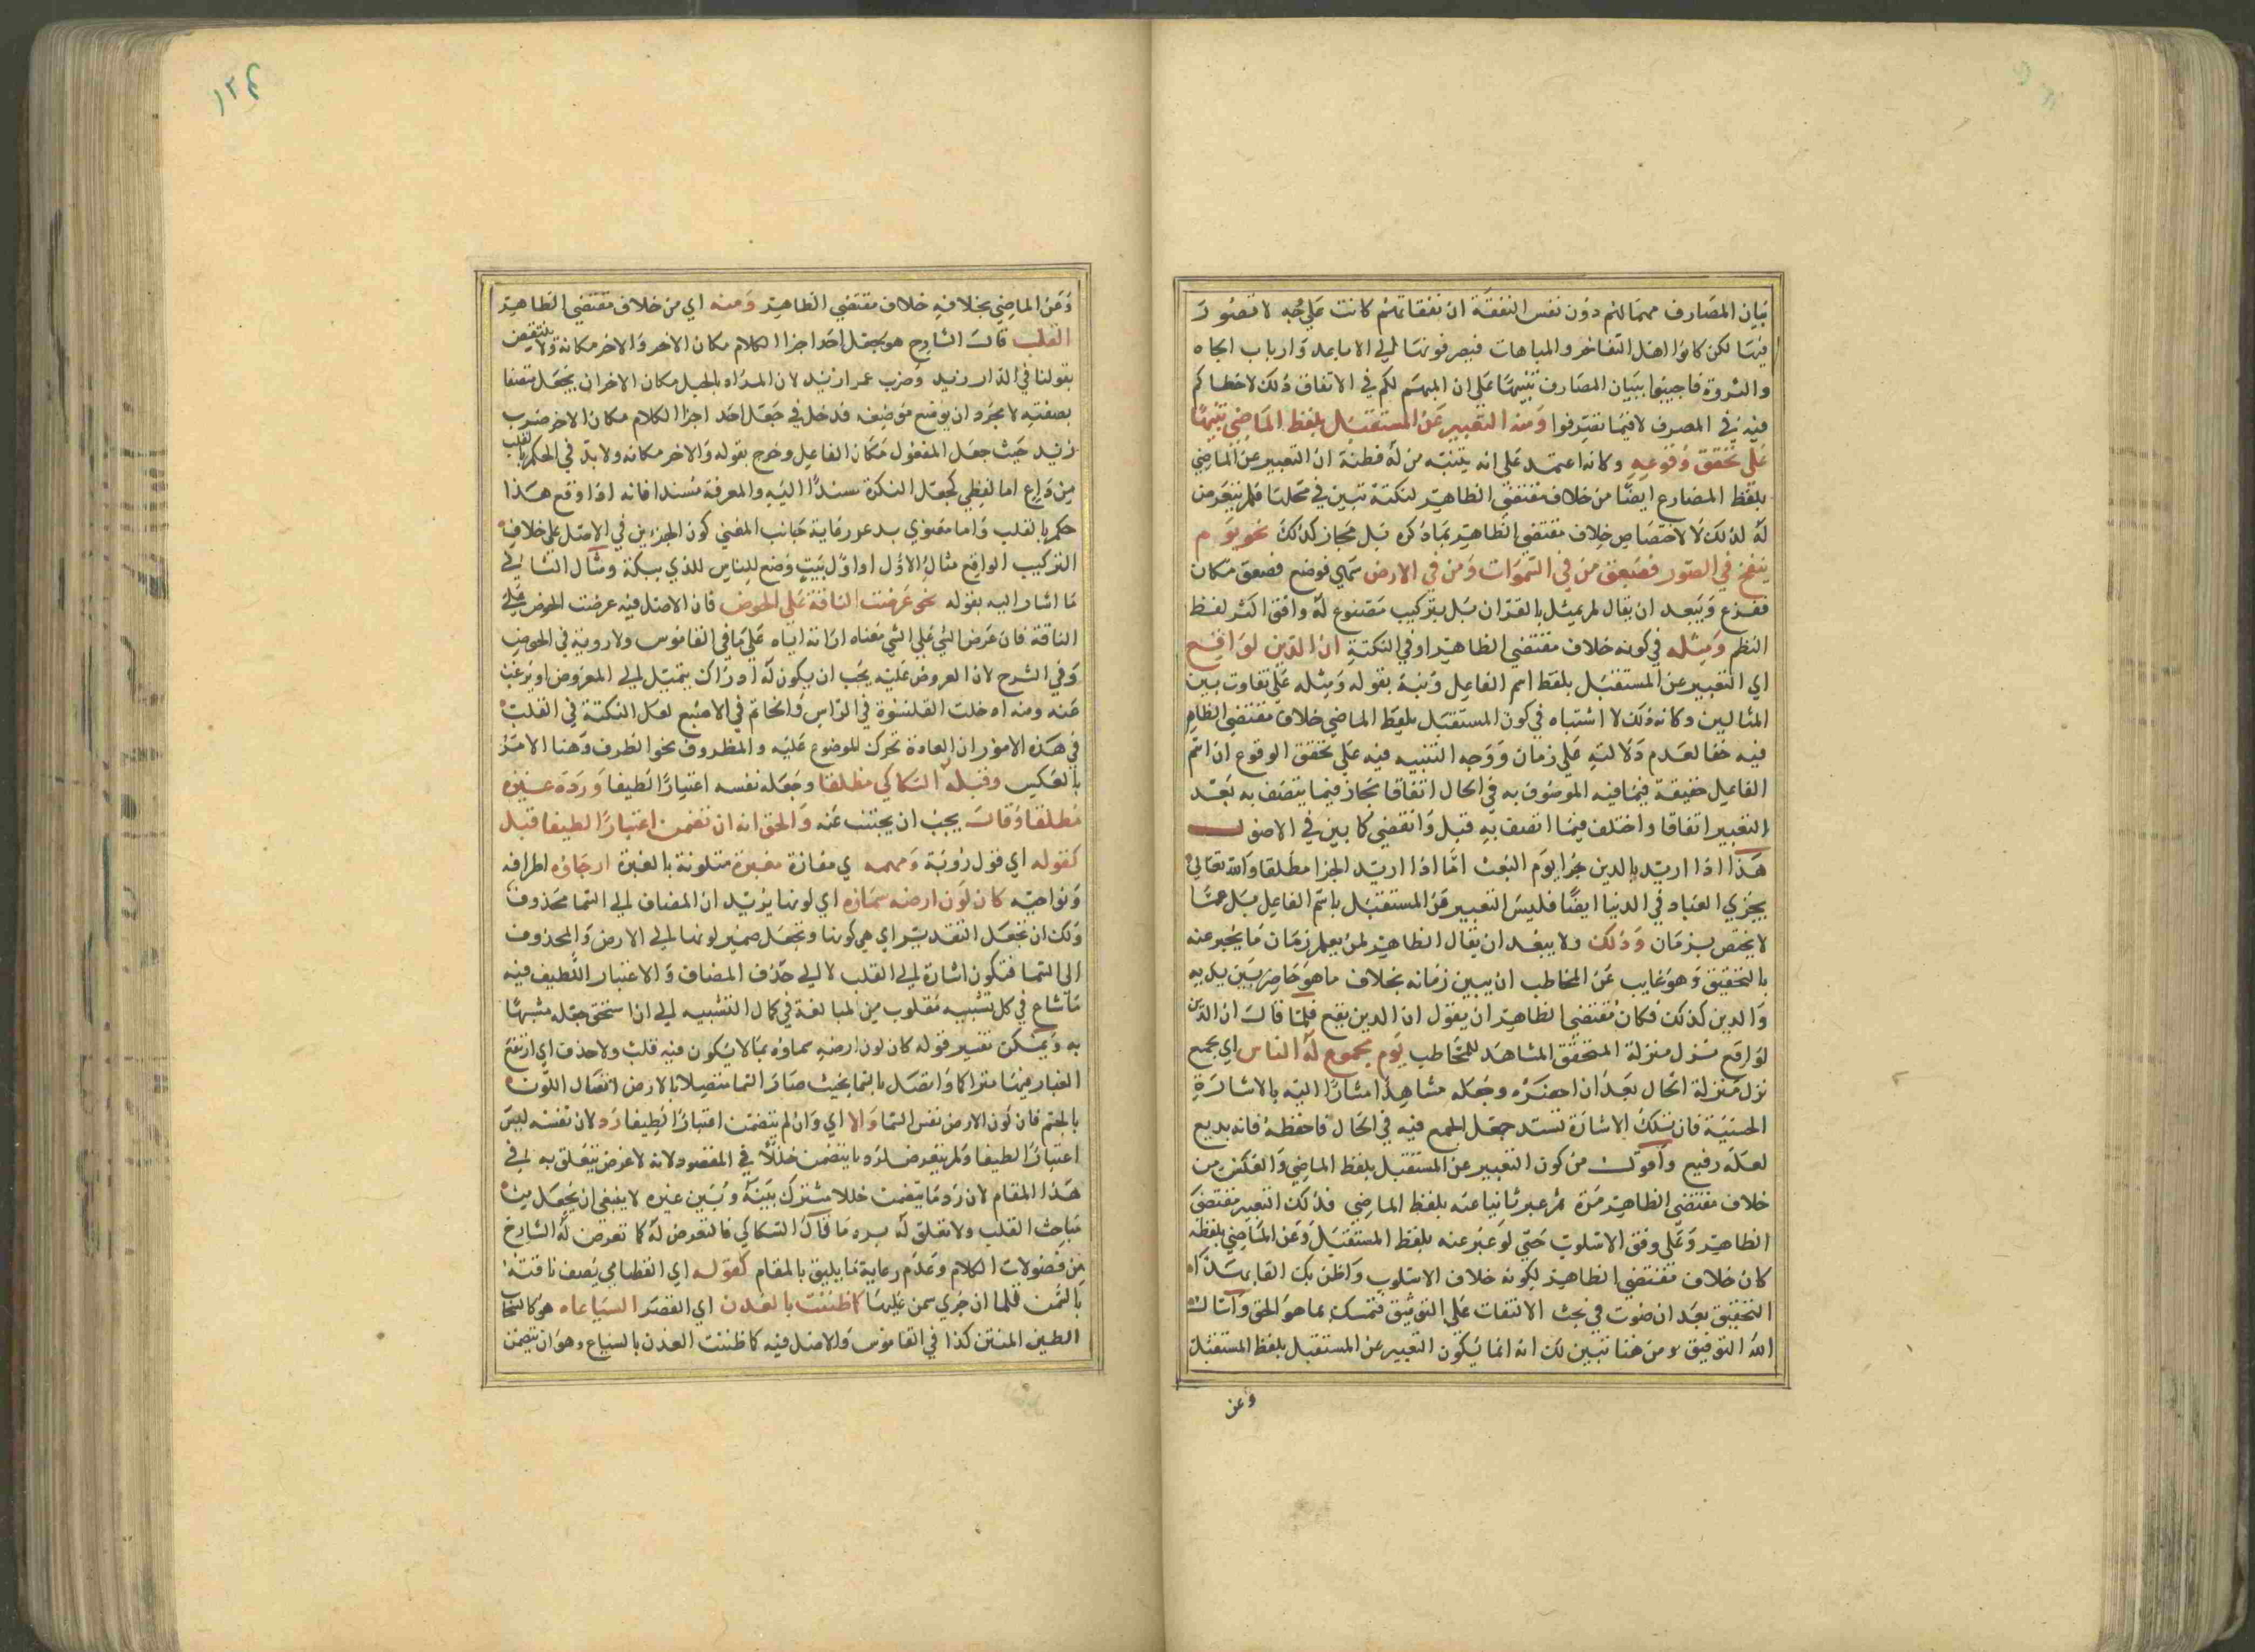 بيان المصارف مهما لهم دون نفس النفقة ان نفقاتهم كانت على وجه لا قصور
فيها لكن كانوا اهل التفاخر والمباهات فيصرفونها الى الاباعد وارباب الجاه
والثروة فاجيبوا ببيان المصارف تنبيها على ان المهم لكم في الانفاق ذلك لاخطاكم
فيه في المصرف لا فيما تقترفوا ومنه التعبير عن المستقبل بلفظ الماضي تنبيها
على تحقق وقوعه وكانه اعتمد على انه يتنبه من له فطنة ان التعبير عن الماضي
بلفظ المضارع ايضا من خلاف مقتضى الظاهر لنكتة تبين في محلها فلم يتعرض
له لذلك لا لاختصاص خلاف مقتضى الظاهر بما ذكره بل مجاز كذلك نحو يوم
ينفخ في الصور فصعق من في السموات ومن في الارض فوضع فصعق مكان
ففزع ويبعد ان يقال لم يمثل بالقران بل بتركيب مصنوع له وافق اكثر لفظ
النظم ومثله في كونه خلاف مقتضى الظاهر او في النكتة ان الدين لواقع
اي التعبير عن المستقبل بلفظ اسم الفاعل ونبه بقوله ومثله على تفاوت بين
المثالين وكانه ذلك لا اشتباه في كون المستقبل بلفظ الماضي خلاف مقتضى الظاهر
فيه خفا لعدم دلالته على زمان ووجه التنبيه فيه على تحقق الوقوع ان اسم
الفاعل حقيقة فيما فيه الموصوف به في الحال اتفاقا مجاز فيما يتصف به بعد
التعبير اتفاقا واختلف فيما اتصف به قبل وانقضى كما بين في الاصول
هذا اذا اريد بالدين جزا يوم البعث اما اذا اريد الجزا مطلقا والله تعالى
يجزي العباد في الدنيا ايضا فليس التعبير عن المستقبل باسم الفاعل بل عما
لا يختص بزمان وذلك ولا يبعد ان يقال الظاهر لمن يعلم زمان ما يخبر عنه
بالتحقيق وهو غايب عن المخاطب ان يبين زمانه بخلاف ما هو حاضر بين يديه
والدين كذلك فكان مقتضى الظاهر ان يقول ان الدين يقع فلما قال ان الدين
لواقع نزل منزلة المتحقق المشاهد للمخاطب يوم مجموع له الناس اي يجمع
نزل منزلة الحال بعد ان احضره وجعله مشاهدا مشارا اليه بالاشارة
الحسية فان تلك الاشارة تستدعي جعل الجمع فيه في الحال فاحفظه فانه بديع
لعله رفيع واقول من كون التعبير عن المستقبل بلفظ الماضي والعكس من
خلاف مقتضى الظاهر مرة ثم عبر ثانيا عنه بلفظ الماضي فذلك التعبير مقتضى
الظاهر وعلى وفق الاسلوب حتى لو عبر عنه بلفظ المستقبل وعن الماضي بلفظه
كان خلاف مقتضى الظاهر لكونه خلاف الاسلوب واظن بك
التحقيق بعد ان في بحث الالتفات على التوثيق فتمسك بما هو الحق واسال
الله التوفيق ومن هنا تبين لك انه انما يكون التعبير عن المستقبل بلفظ المستقبل
وعن
١٢٤
وعن الماضي بخلافه خلاف مقتضى الظاهر ومنه اي من خلاف مقتضى الظاهر
القلب قال الشارح هو يجعل احد اجزا الكلام مكان الاخر والاخر مكانه ولا ينتقض
بقولنا في الدار زيد وضرب عمرا زيد لان المراد بالجعل مكان الاخر ان يجعل متصفا
بصفته لا مجرد ان يوقع موضعه فدخل في جعل احد اجزا الكلام مكان الاخر ضرب
زيد حيث جعل المفعول مكان الفاعل وخرج بقوله والاخر مكانه ولا بد في الحكم بالقلب
من داع اما لفظي كجعل النكرة مسندا اليه والمعرفة مسندا فانه اذا وقع هذا
حكم بالقلب واما معنوي رعاية جانب المعنى كون الجزءين في الاصل على خلاف
التركيب الواقع مثال الاول ان اول بيت وضع للناس للذي ببكة ومثال الثاني
ما اشار اليه بقوله نحو عرضت الناقة على الحوض فان الاصل فيه عرضت الحوض على
الناقة فان عرض الشي على الشي معناه اراته اياه على ما في القاموس ولا روية في الحوض
وفي الشرح لان المعروض عليه يجب ان يكون له ادراك يتميل الى المعروض او يرغب
عنه ومنه ادخلت القلنسوة في الراس والخاتم في الاصبع لعل النكتة في القلب
في هذه الامور ان العادة تحرك للموضوع عليه والمظروف نحو الظرف وهنا الامر
بالعكس وقبله السكاكي مطلقا وجعله نفسه اعتبارا لطيفا ورده غيره
مطلقا وقال يجب ان يجتنب عنه والحق انه ان تضمن اعتبارا لطيفا قبل
كقوله اي قول رؤبة ومهمه اي مفازة مغبرة متلونة بالغبرة ارجاؤه اطرافه
ونواحيه كان لون ارضه سماؤه اي لونها يريد ان المضاف الى السما محذوف
ولك ان تجعل التقدير اي هي كونها وتجعل ضمير لونها الى الارض والمحذوف
الى السما فتكون اشارة الى القلب لا الى حذف المضاف والاعتبار اللطيف فيه
ما شاع في كل تشبيه مقلوب من المبالغة في كمال التشبيه الى ان استحق جعله مشبها
به ويمكن تفسير قوله كان لون ارضه سماؤه بما لا يكون فيه قلب ولا حذف اي ارتفع
الغبار منها متراكما واتصل بالسما بحيث صار السما متصلا بالارض اتصال اللون
بالجسم فان لون الارض نفس السما والا اي وان لم يتضمن اعتبارا لطيفا رد لان نفسه ليس
اعتبارا لطيفا ولم يتعرض لرد ما يتضمن خللا في المقصود لانه لا غرض يتعلق به في
هذا المقام لان رد ما يتضمن خللا مشترك بينه وبين غيره لا ينبغي ان يجعل من
مباحث القلب ولا تعلق له برد ما قال السكاكي فالتعرض له كما تعرض له الشارح
من فضولات الكلام وعدم رعاية ما يليق بالمقام كقوله اي القطامي يصف ناقته
بالسمن فلما ان جرى سمن عليها كما ظننت بالفدن اي القصر السياعا هو كالسحاب
الطين المتتن كذا في القاموس والاصل فيه كما ظننت الفدن بالسياع وهو ان يتضمن